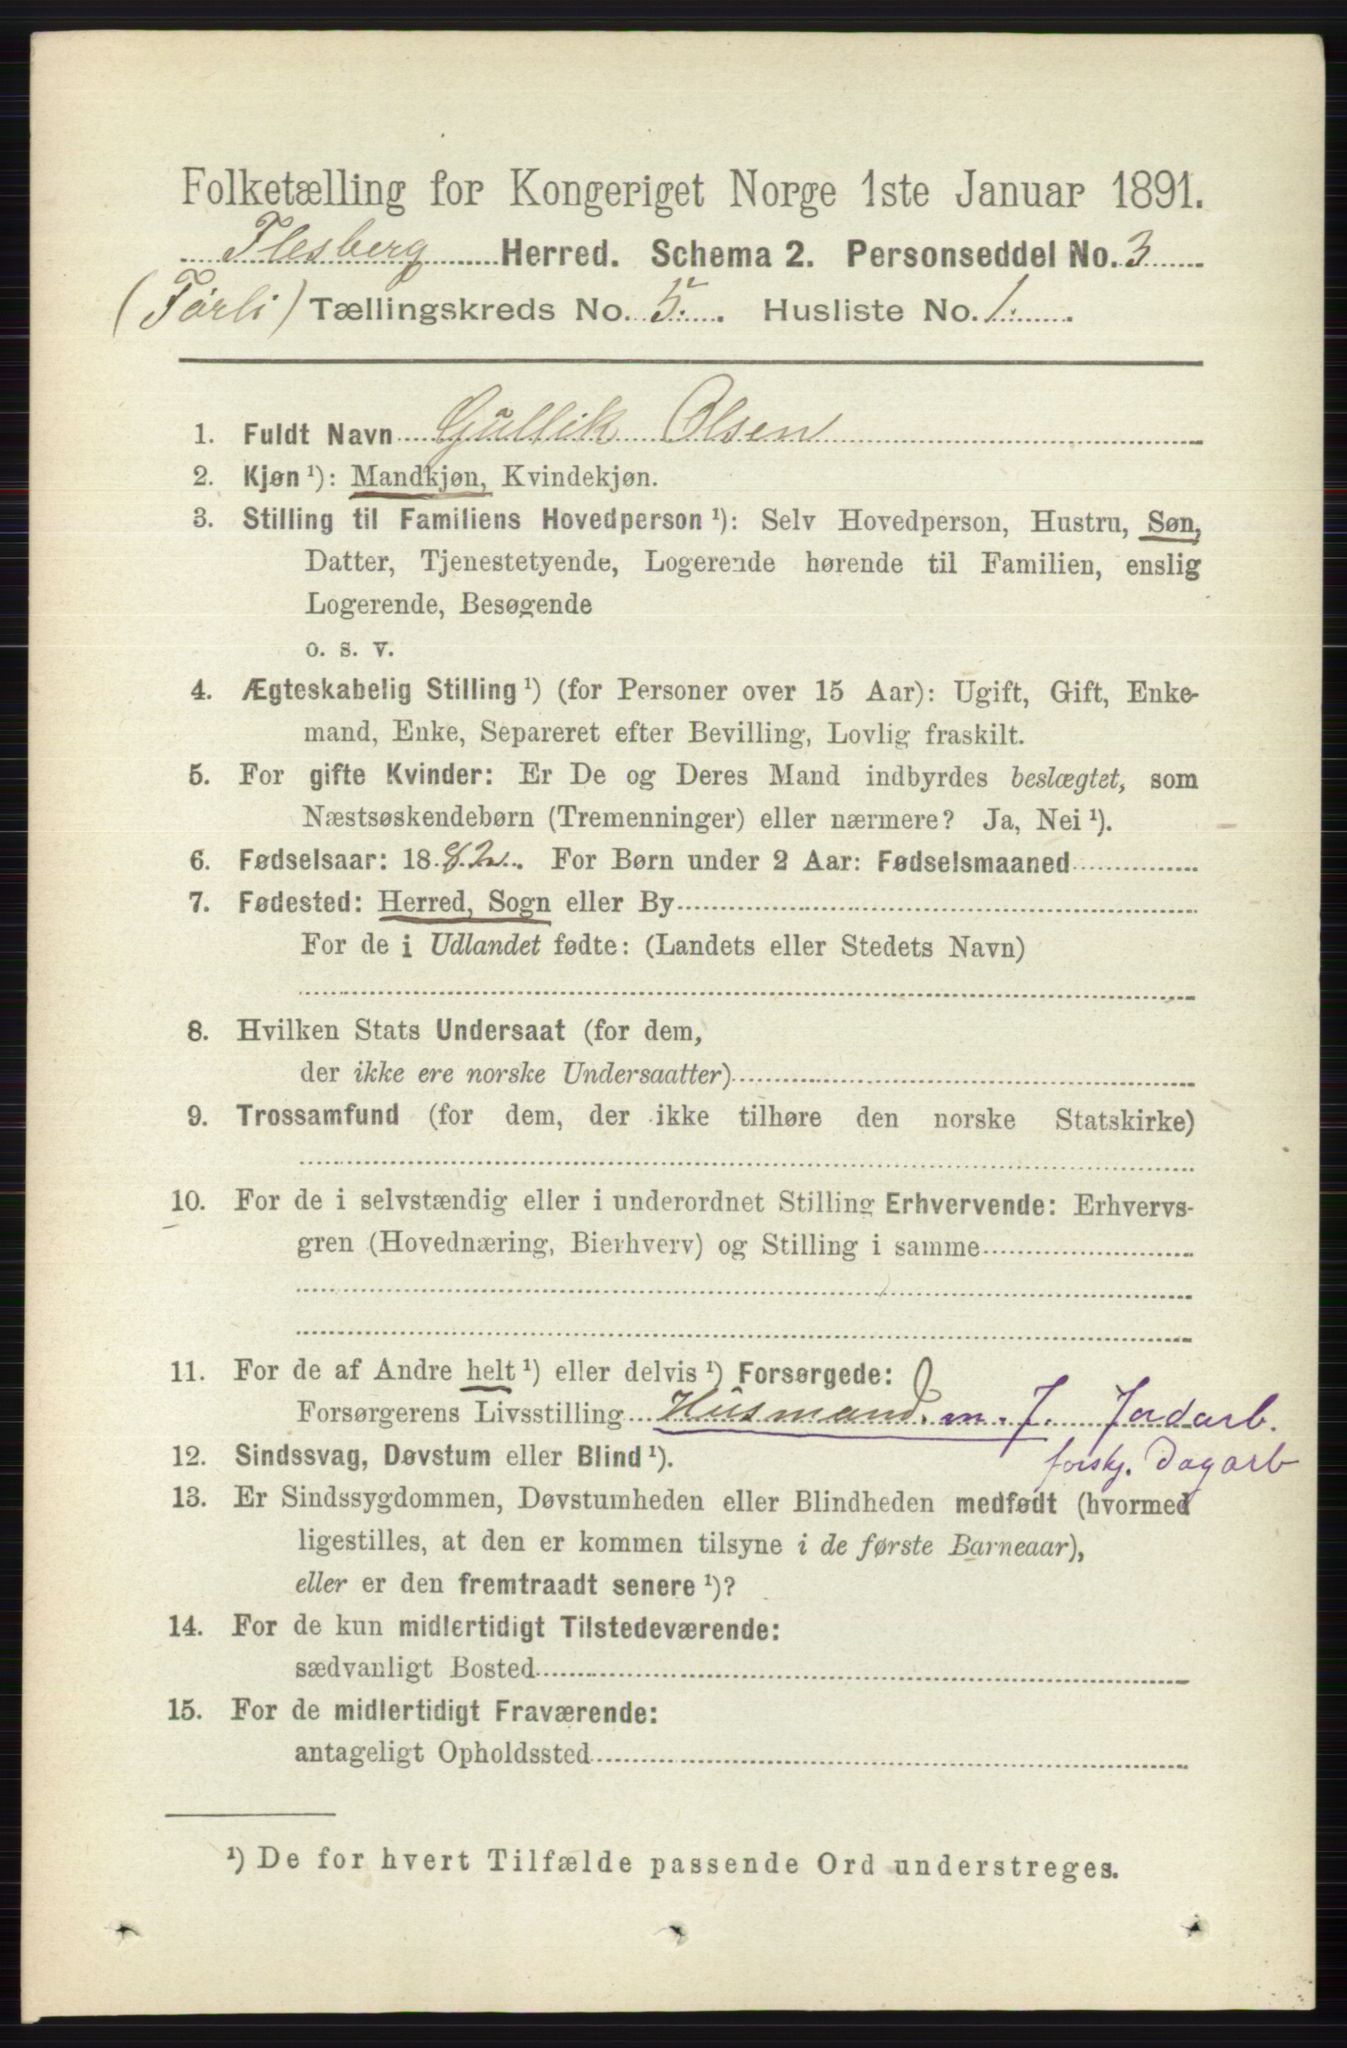 Folketælling for Kongeriget Norge 1ste Januar 1891.
Flesberg Herred. Schema 2. Personseddel No. 3
(Førli) Tællingskreds No. 5. Husliste No. 1.
1. Fuldt Navn Gullik Olsen
2. Kjøn ¹): Mandkjøn, Kvindekjøn.
3. Stilling til Familiens Hovedperson ¹): Selv Hovedperson, Hustru, Søn,
Datter, Tjenestetyende, Logerende hørende til Familien, enslig
Logerende, Besøgende
o. s. v.
4. Ægteskabelig Stilling ¹) (for Personer over 15 Aar): Ugift, Gift, Enke-
mand, Enke, Separeret efter Bevilling, Lovlig fraskilt.
5. For gifte Kvinder: Er De og Deres Mand indbyrdes beslægtet, som
Næstsøskendebørn (Tremenninger) eller nærmere? Ja, Nei ¹).
6. Fødselsaar: 1882. For Børn under 2 Aar: Fødselsmaaned
7. Fødested: Herred, Sogn eller By
For de i Udlandet fødte: (Landets eller Stedets Navn)
8. Hvilken Stats Undersaat (for dem,
der ikke ere norske Undersaatter)
9. Trossamfund (for dem, der ikke tilhøre den norske Statskirke)
10. For de i selvstændig eller i underordnet Stilling Erhvervende: Erhvervs-
gren (Hovednæring, Bierhverv) og Stilling i samme
11. For de af Andre helt ¹) eller delvis ¹) Forsørgede:
Forsørgerens Livsstilling Husmand. m. J. Jordarb.
forskj. Dagarb
12. Sindssvag, Døvstum eller Blind ¹).
13. Er Sindssygdommen, Døvstumheden eller Blindheden medfødt (hvormed
ligestilles, at den er kommen tilsyne i de første Barneaar),
eller er den fremtraadt senere ¹)?
14. For de kun midlertidigt Tilstedeværende:
sædvanligt Bosted
15. For de midlertidigt Fraværende:
antageligt Opholdssted
¹) De for hvert Tilfælde passende Ord understreges.